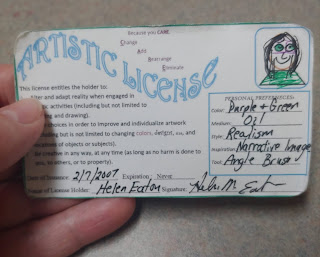 Because you CARE
Change
Add
Rearrange
Eliminate
ARTISTIC LICENSE
This license entitles the holder to:
and adapt reality when engaged in
activities (including but not limited to
and drawing).
choices in order to improve and individualize artwork
including but is not limited to changing colors, design, size, and
locations of objects or subjects).
creative in any way, at any time (as long as no harm is done to
others, or to property).
PERSONAL PREFERENCES:
Color: Purple + Green
Medium: Oil
Style: Realism
Inspiration: Narrative Image
Tool: Angle Brush
Date of Issuance: 2/7/2007 Expiration: Never
Name of License Holder: Helen Eaton Signature: Helen M Eaton